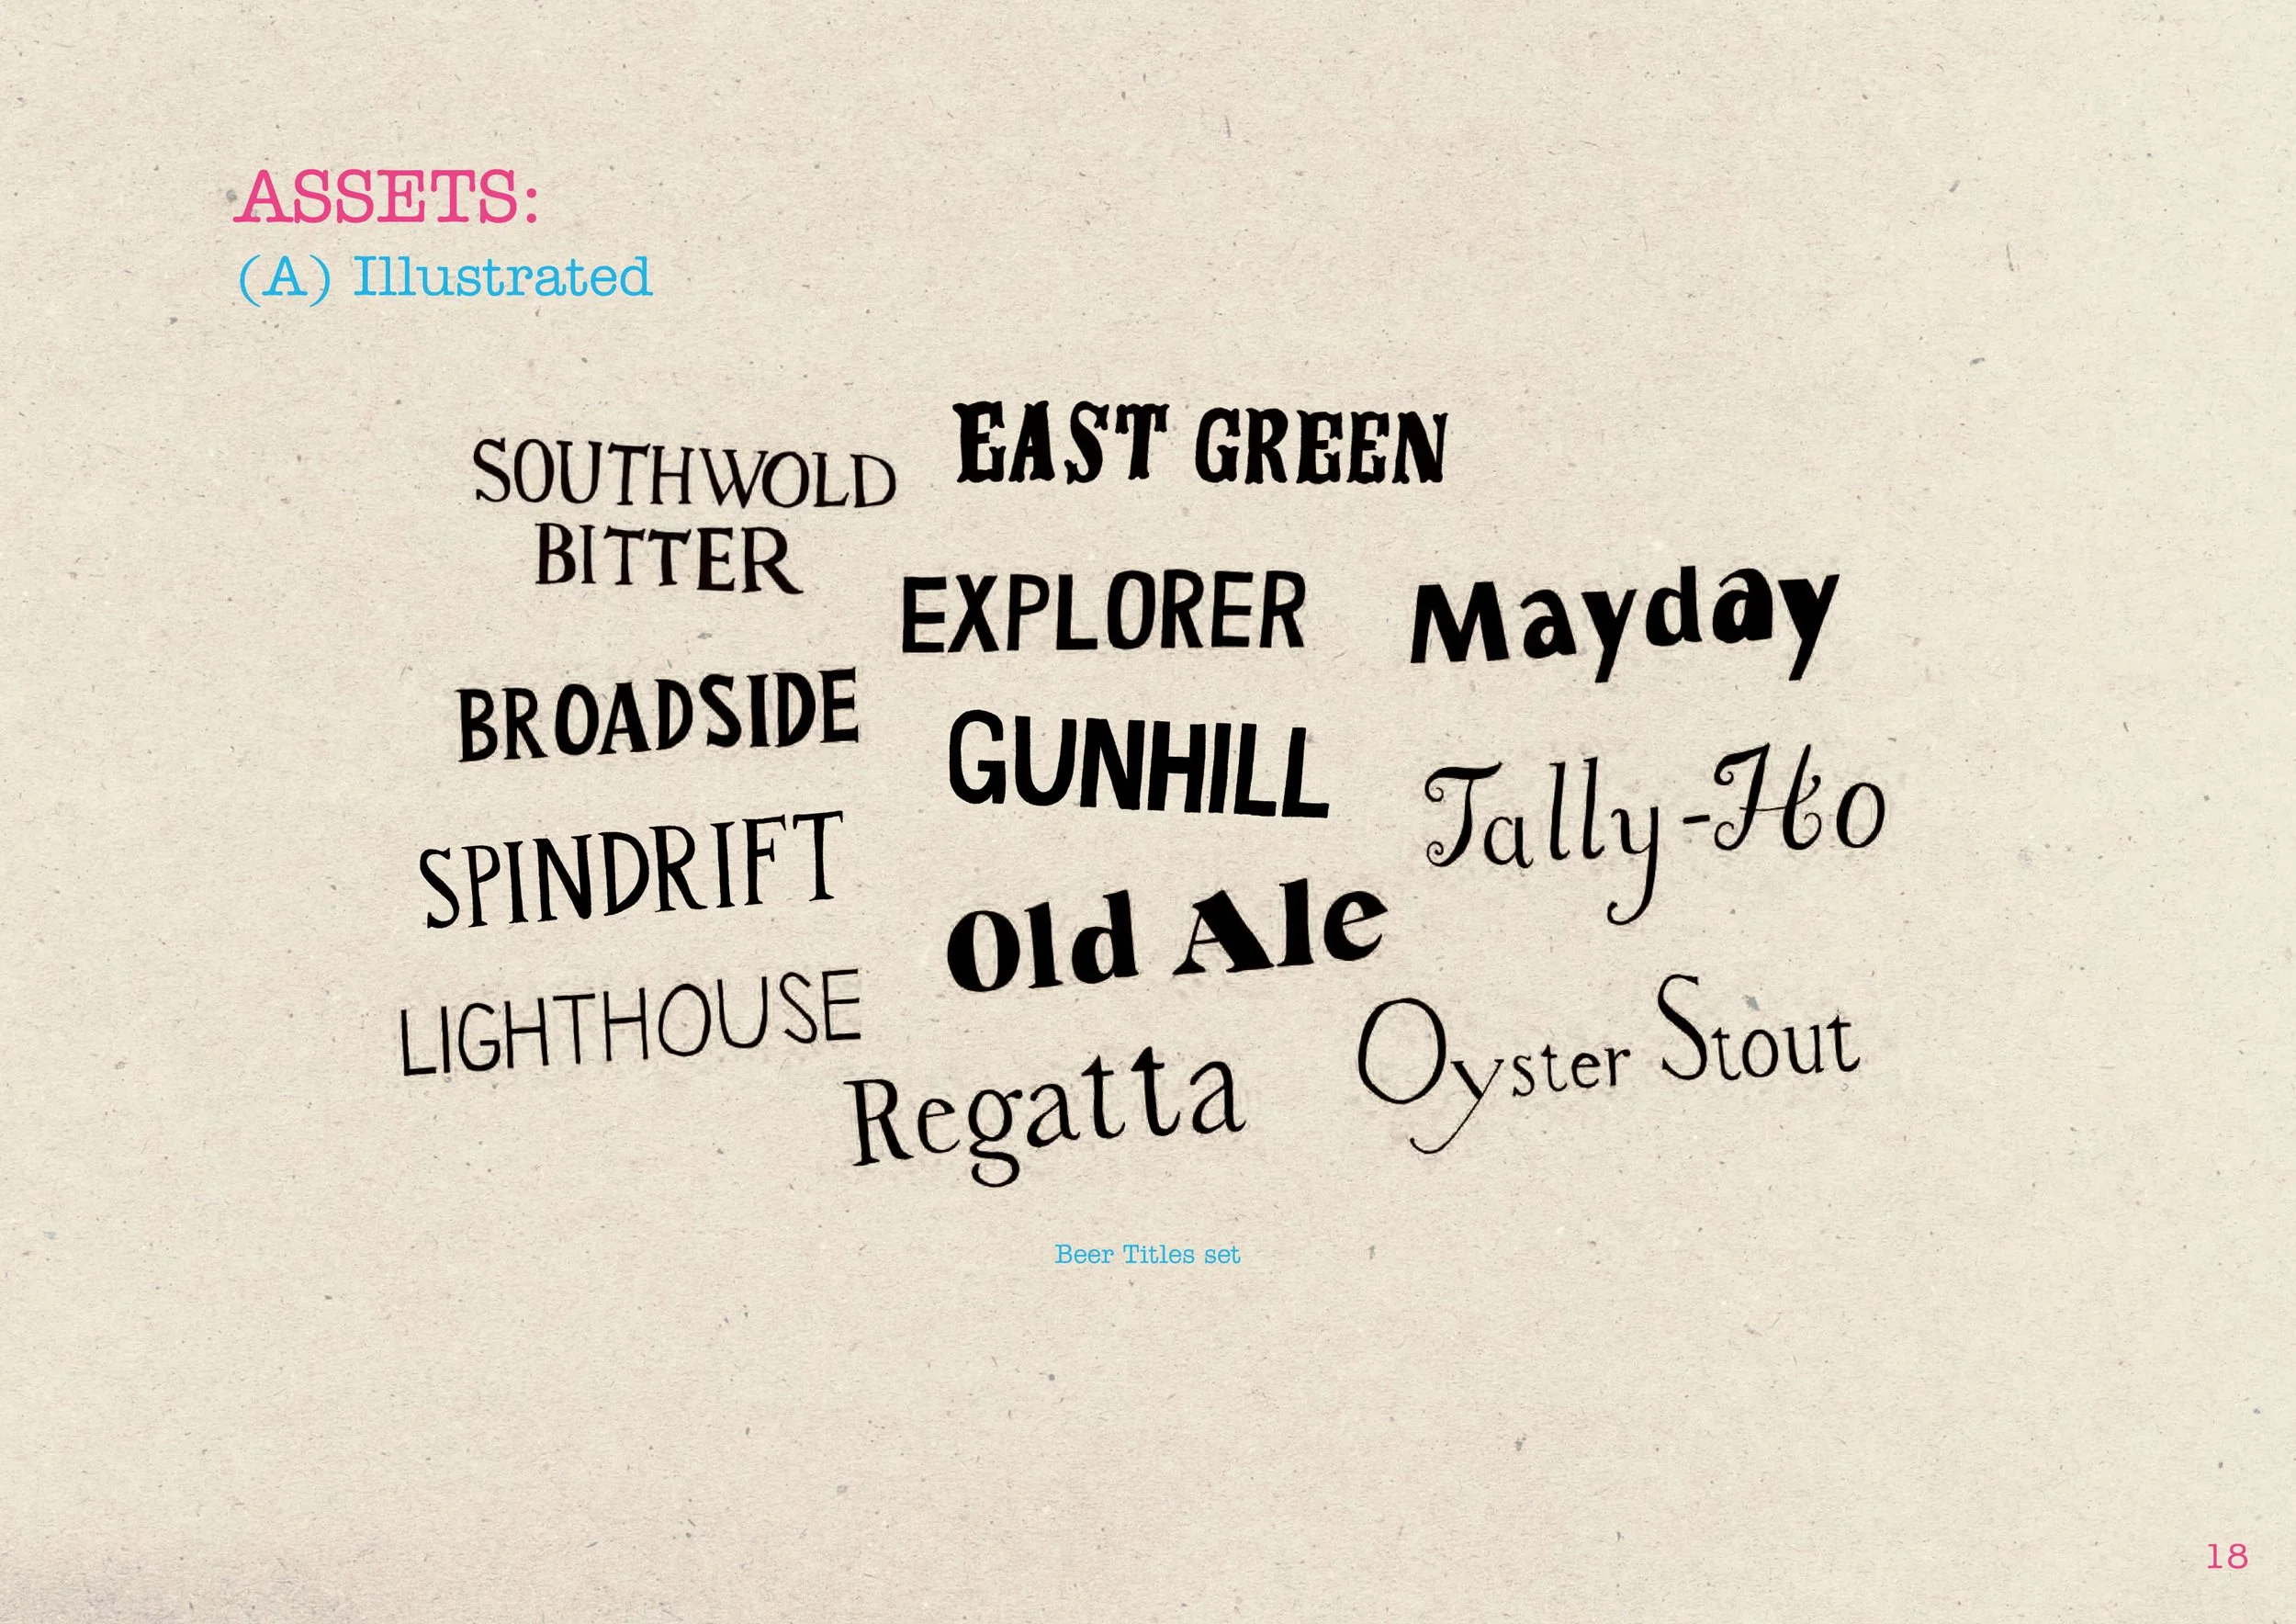 ASSETS:
(A) Illustrated
SOUTHWOLD
BITTER
EAST GREEN
EXPLORER
Mayday
BROADSIDE
GUNHILL
Tally-Ho
SPINDRIFT
Old Ale
LIGHTHOUSE
Regatta
Oyster Stout
Beer Titles set
18